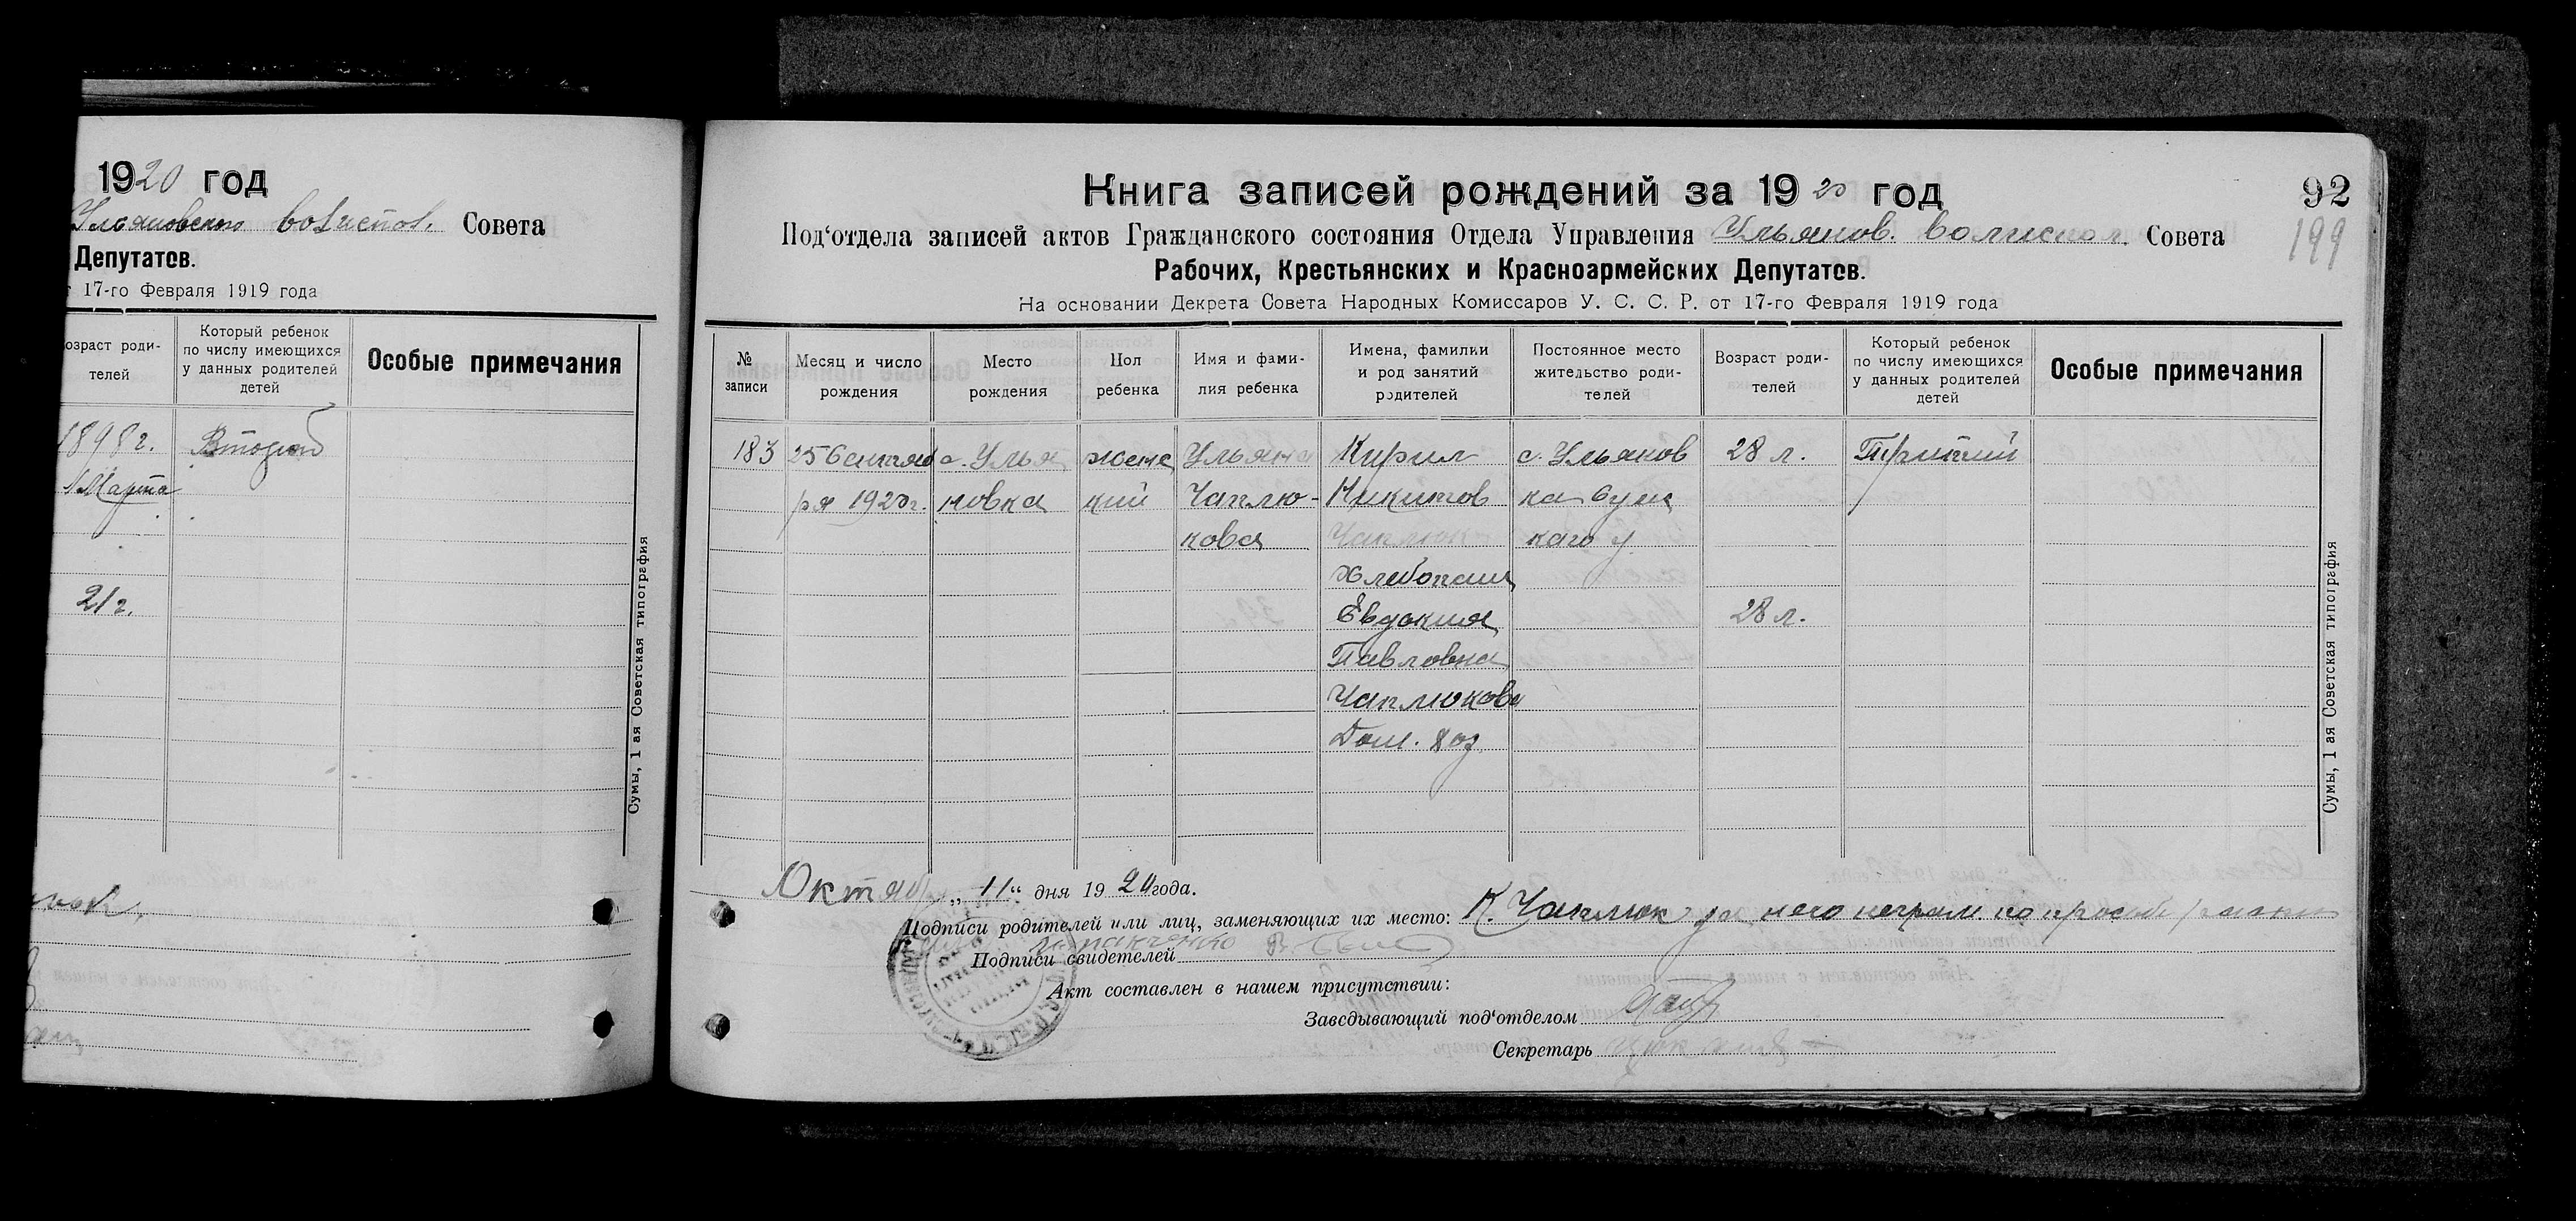 1920 год
Ульяновского волистов. Совета
Депутатов.
17-го Февраля 1919 года
озраст роди-
телей
Который ребенок
по числу имеющихся
у данных родителей
детей
Особые примечания
1898 г.
Второй
1 Марта
21 г.
Сумы, 1 ая Советская типография
92
199
Книга записей рождений за 1920 год
Под‘отдела записей актов Гражданского состояния Отдела Управления Ульянов. волиснол. Совета
Рабочих, Крестьянских и Красноармейских Депутатов.
На основании Декрета Совета Народных Комиссаров У. С. С. Р. от 17-го Февраля 1919 года
№
записи
Месяц и число
рождения
Место
рождения
Пол
ребенка
Имя и фами-
лия ребенка
Имена, фамилии
и род занятий
родителей
Постоянное место
жительство роди-
телей
Возраст роди-
телей
Который ребенок
по числу имеющихся
у данных родителей
детей
Особые примечания
183
25 Сентяб
ря 1920 г.
с. Улья
новка
женс
кий
Ульяна
Чаплю-
кова
Кирил
Никитов
Чаплюк
Хлебопаш
Евдокия
Павловна
Чаплюкова
Дом. хоз.
с. Ульянов
ка Сумс
каго у.
28 л.
28 л.
Третий
Сумы, 1 ая Советская типография
Октября „11“ дня 1920 года.
Подписи родителей или лиц, заменяющих их место: К. Чаплюк за него неграм. по прозьбе
Подписи свидетелей
Акт составлен в нашем присутствии:
Заведывающий под‘отделом
Секретарь